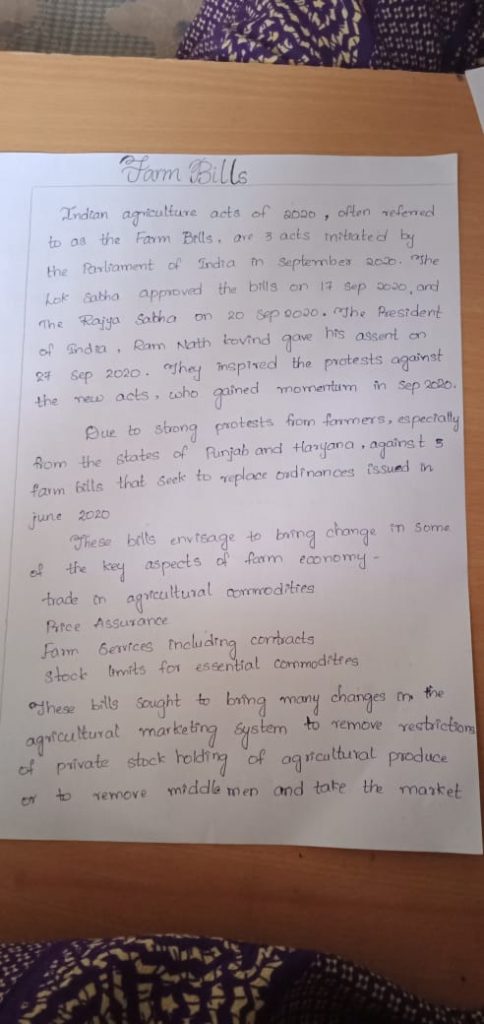 Farm Bills
Indian agriculture acts of 2020, often referred
to as the Farm Bills, are 3 acts initiated by
the Parliament of India in September 2020. The
Lok Sabha approved the bills on 17 Sep 2020, and
The Rajya Sabha on 20 Sep 2020. The President
of India, Ram Nath kovind gave his assent on
27 Sep 2020. They inspired the protests against
the new acts, who gained momentum in Sep 2020.
Due to strong protests from farmers, especially
from the states of Punjab and Haryana, against 3
farm bills that seek to replace ordinances issued in
june 2020
These bills envisage to bring change in some
of the key aspects of farm economy -
trade in agricultural commodities
Price Assurance
Farm Services including contracts
Stock limits for essential commodities
These bills sought to bring many changes in the
agricultural marketing system to remove restrictions
of private stock holding of agricultural produce
or to remove middle men and take the market